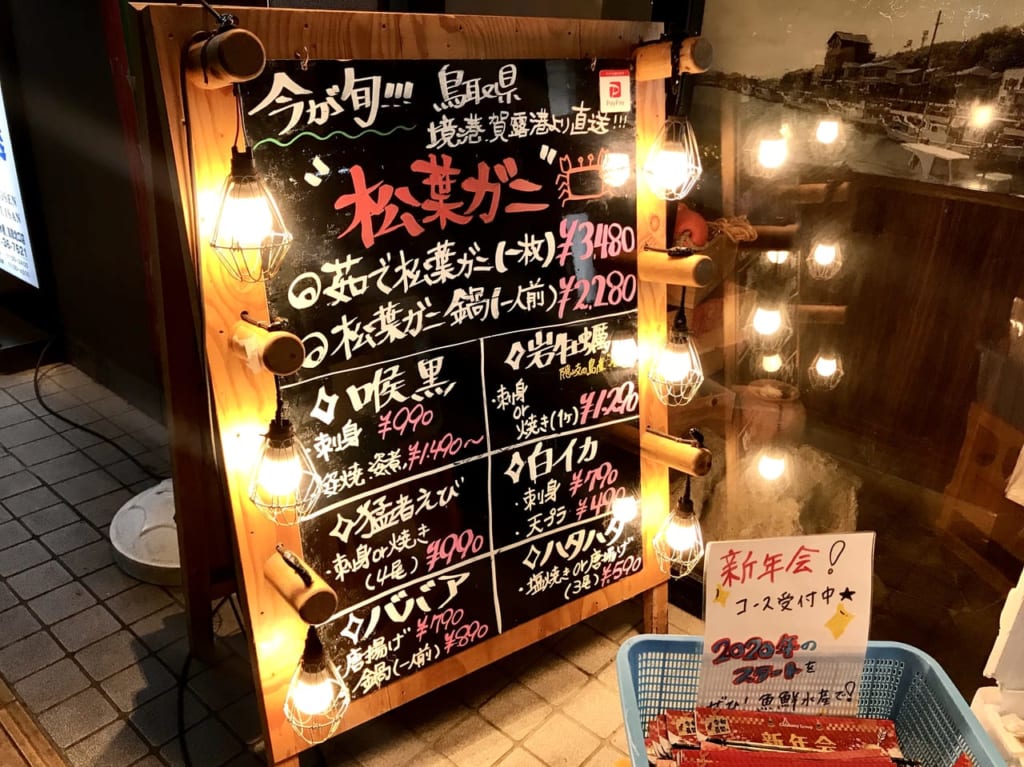 今が旬!!!
鳥取県
境港 賀露港より直送!!!
PayPay
"松葉ガニ"
茹で松葉ガニ(一枚) ¥3,480
松葉ガニ鍋(一人前) ¥2,280
喉黒
・刺身 ¥990
姿焼、姿煮、¥1,490〜
岩牡蠣
・刺身
or
焼き(1ヶ) ¥1,290
猛者えび
・刺身or焼き
(4尾) ¥990
白イカ
・刺身 ¥790
天プラ ¥490
ババア
唐揚げ ¥790
鍋(一人前) ¥890
ハタハタ
・塩焼きor唐揚げ
(3尾) ¥590
新年会!
コース受付中★
2020年の
スタートを
ぜひ魚鮮水産で!
新年会
36-7521